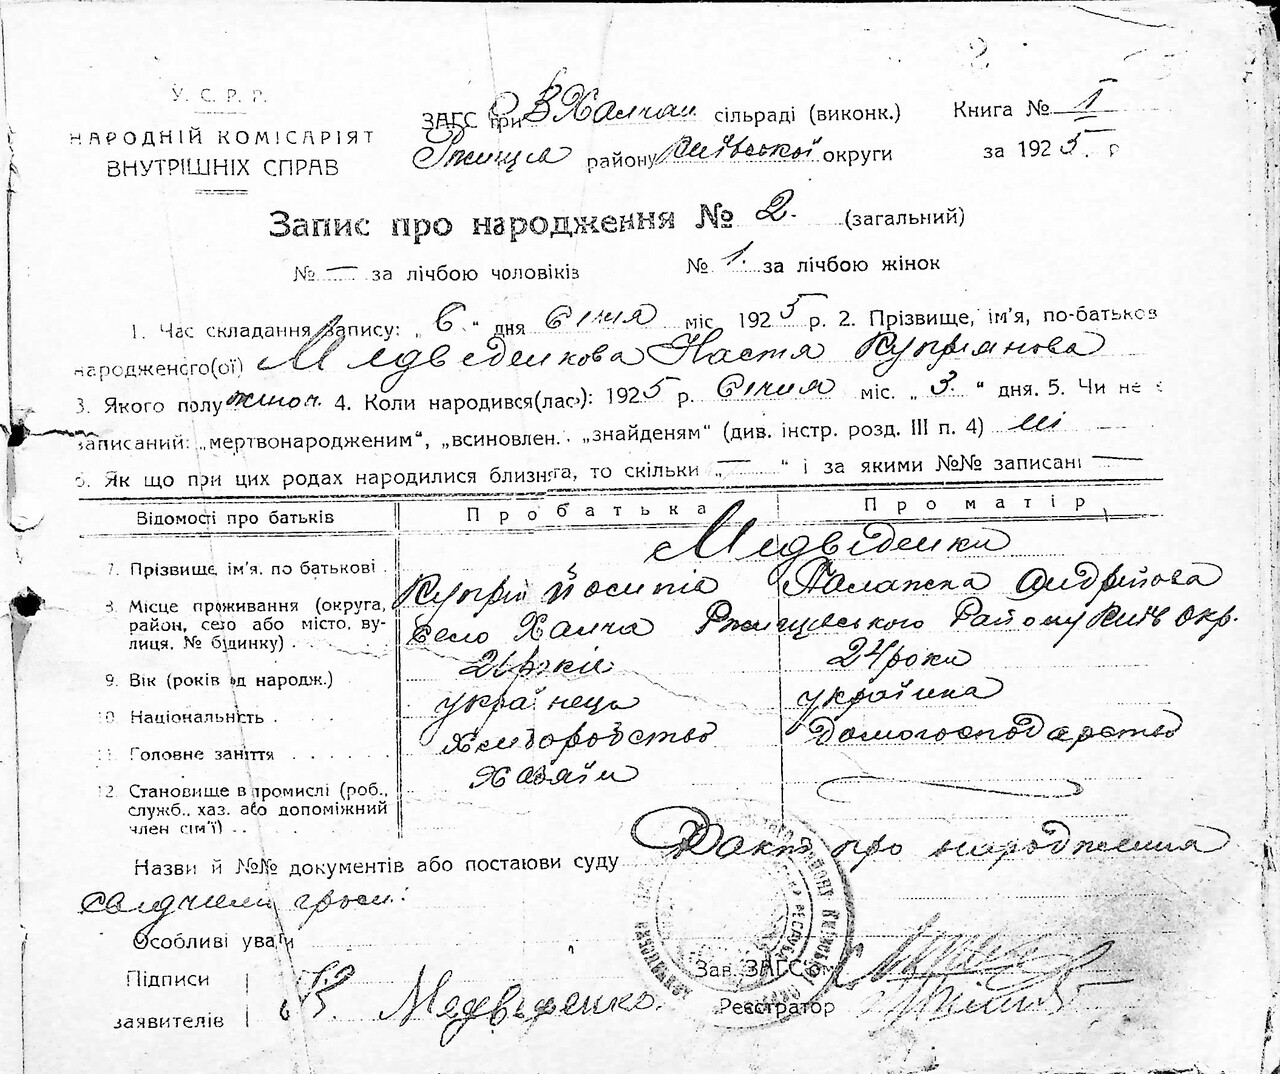 У. С. Р. Р.
НАРОДНІЙ КОМІСАРІЯТ
ВНУТРІШНІХ СПРАВ
ЗАГС при В Халчан сільраді (виконк.)
Ржищів району Київської округи
Книга № I
за 1925. р
Запис про народження № 2. (загальний)
№ — за лічбою чоловіків № 1. за лічбою жінок
1. Час складання запису: „ 6 “ дня Січня міс 1925 р. 2. Прізвище, ім'я, по-батьков
народженого(ої) Медвєденкова Настя Купріянова
3. Якого полу жіноч. 4. Коли народився(лась): 1925 р. Січня міс. „ 3. “ дня. 5. Чи не є
записаний: „мертвонародженим“, „всиновлен., „знайденям“ (див. інстр. розд. III п. 4) ні
6. Як що при цих родах народилися близнята, то скільки „ — “ і за якими №№ записані —
Відомості про батьків Про батька Про матір
Медвєденки
7. Прізвище, ім'я, по батькові Купрій Йосипів Палажка Андрійова
8. Місце проживання (округа, район, село або місто, вулиця, № будинку) Село Халча Ржищівського Району Київ окр.
9. Вік (років од народж.) 26 років 24 роки
10 Національність українець українка
11. Головне заняття Хліборобство Домогосподарство
12 Становище в промислі (роб., служб., хаз. або допоміжний член сім'ї) Хазяїн
Назви й №№ документів або постанови суду Факт про народження
свідчили гром.
Особливі уваги
Підписи
заявителів К Медведенко.
Зав. ЗАГС'ом
Реєстратор